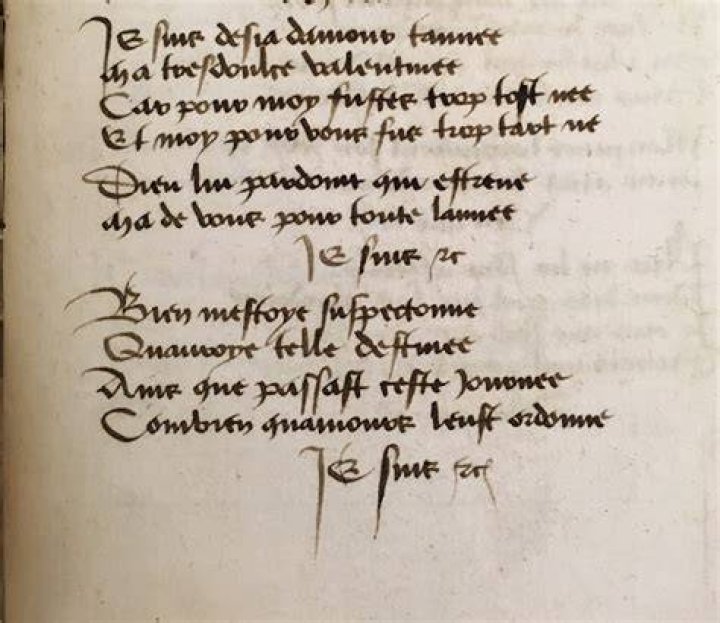 Je suis desia damour tanne
Ma tresdoulce valentinee
Car pour moy fustes trop tost nee
Et moy pour vous fus trop tart ne
Dieu lui pardoint qui estrene
Ma de vous pour toute lannee
Je suis &c
Bien mestoye suspeconne
Quauroye telle destinee
Ains que passast ceste journee
Combien quamours leust ordonne
Je suis &c